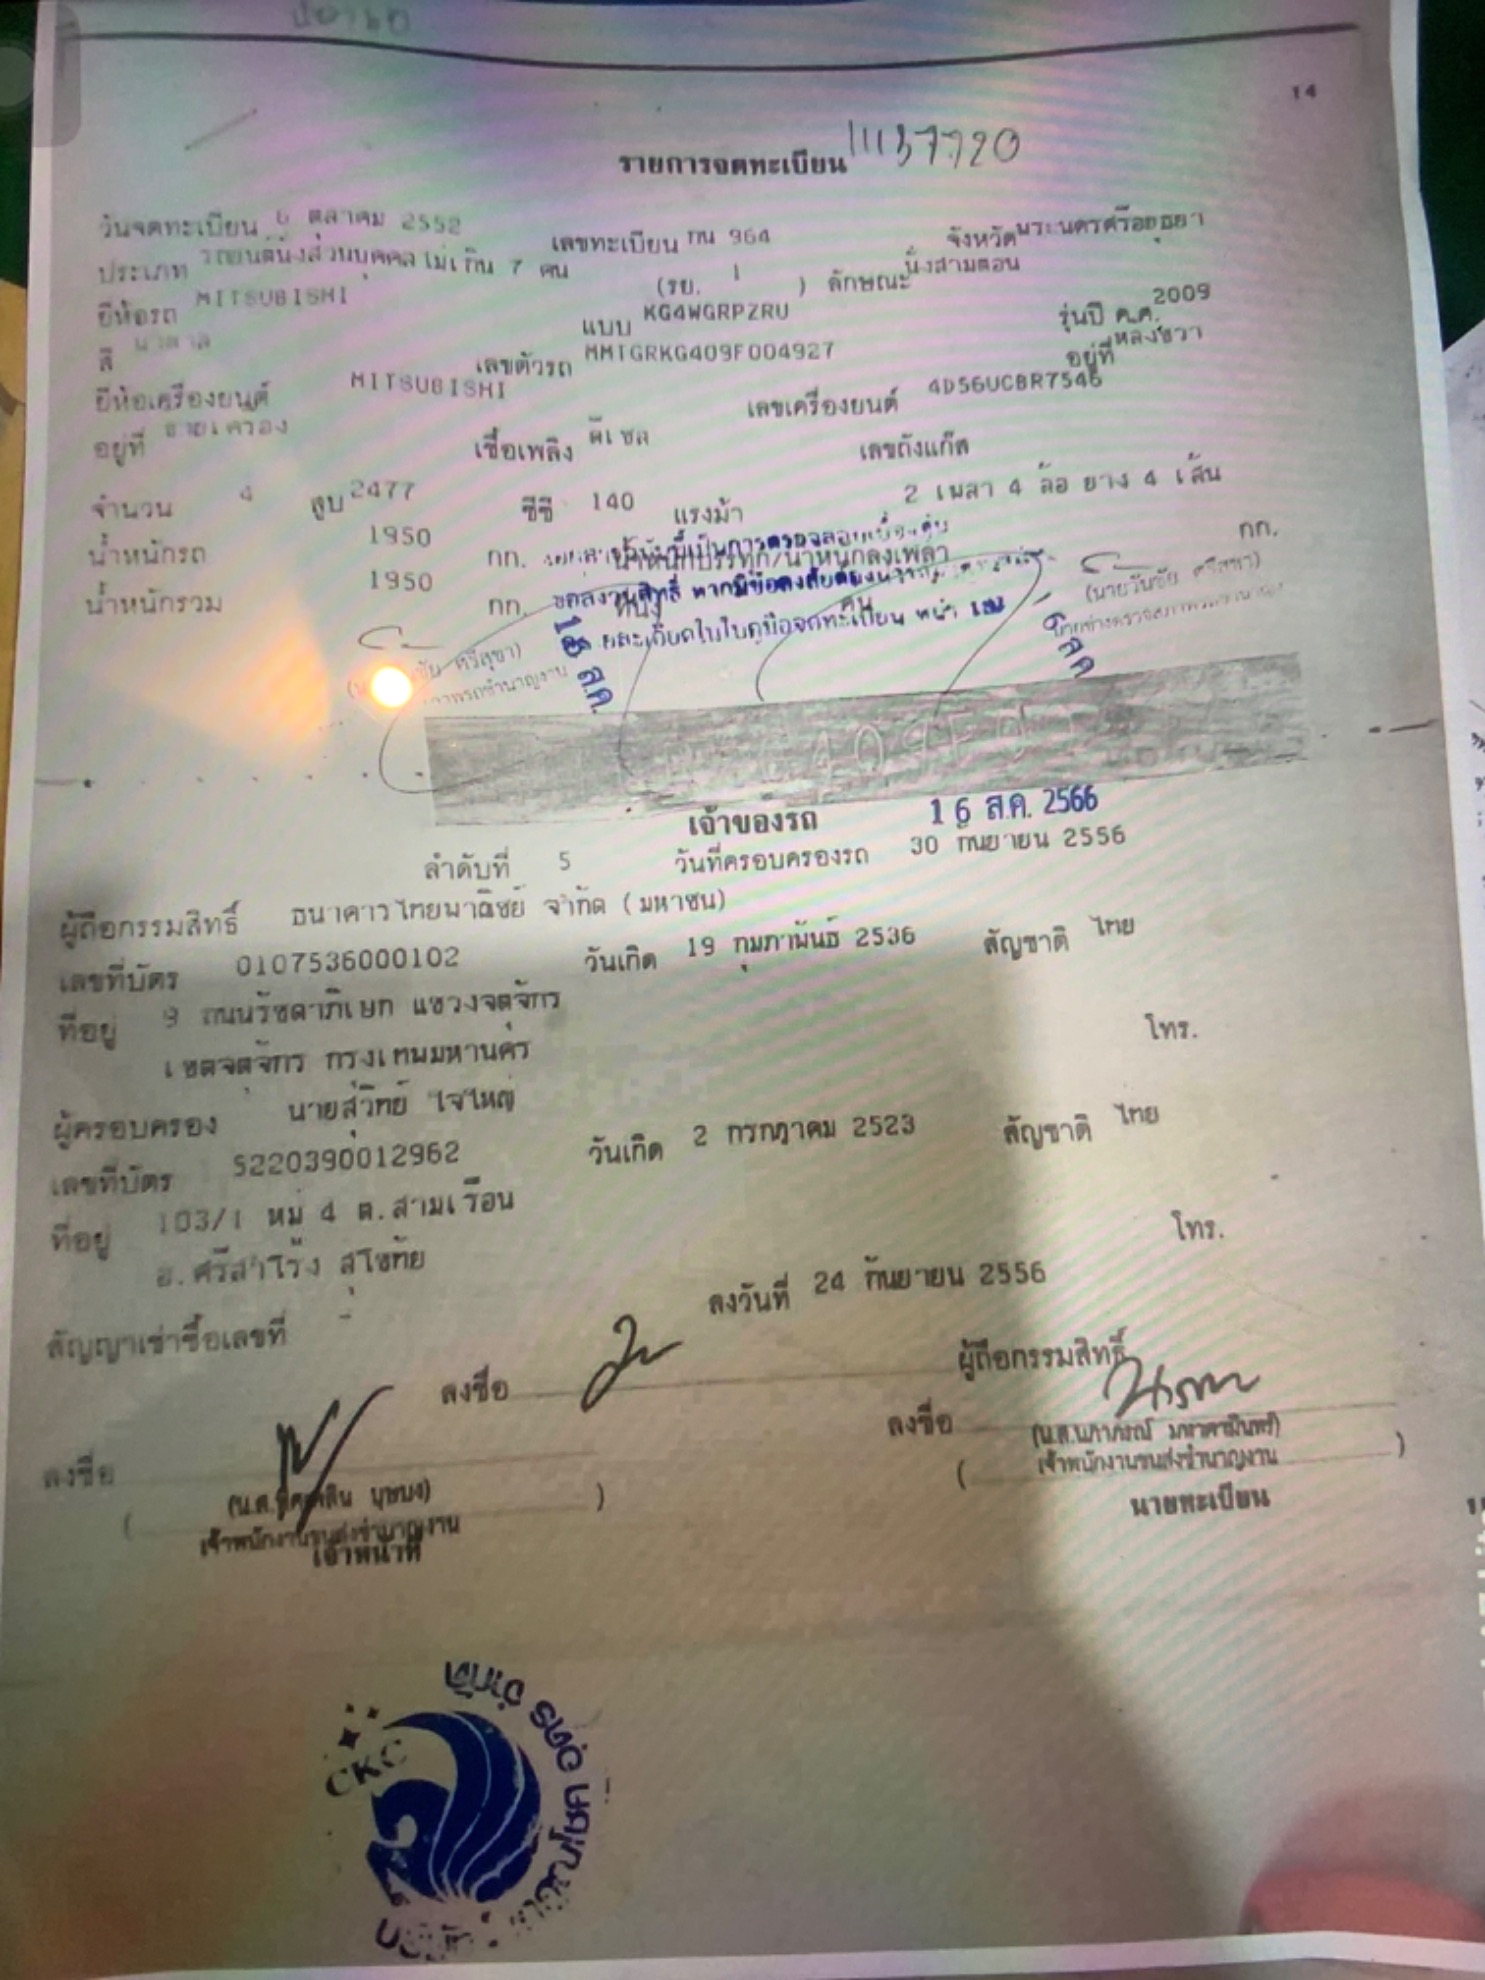 14
รายการจดทะเบียน 11137720
วันจดทะเบียน 6 ตุลาคม 2552 เลขทะเบียน กน 964 จังหวัด พระนครศรีอยุธยา
ประเภท รถยนต์นั่งส่วนบุคคลไม่เกิน 7 คน (รย. 1 ) ลักษณะ นั่งสามตอน
ยี่ห้อรถ MITSUBISHI แบบ KG4WGRPZRU รุ่นปี ค.ศ. 2009
สี น้ำตาล เลขตัวรถ MMTGRKG409F004927 อยู่ที่ หลังขวา
ยี่ห้อเครื่องยนต์ MITSUBISHI เลขเครื่องยนต์ 4D56UCBR7546
อยู่ที่ ซ้ายเครื่อง เชื้อเพลิง ดีเซล เลขถังแก๊ส
จำนวน 4 สูบ 2477 ซีซี 140 แรงม้า 2 เพลา 4 ล้อ ยาง 4 เส้น
น้ำหนักรถ 1950 กก. น้ำหนักบรรทุก/น้ำหนักลงเพลา กก.
น้ำหนักรวม 1950 กก. ที่นั่ง คน
(นายวันชัย ศรีสุขา)
เจ้าของรถ 16 ส.ค. 2566
ลำดับที่ 5 วันที่ครอบครองรถ 30 กันยายน 2556
ผู้ถือกรรมสิทธิ์ ธนาคารไทยพาณิชย์ จำกัด (มหาชน)
เลขที่บัตร 0107536000102 วันเกิด 19 กุมภาพันธ์ 2536 สัญชาติ ไทย
ที่อยู่ 9 ถนนรัชดาภิเษก แขวงจตุจักร
เขตจตุจักร กรุงเทพมหานคร โทร.
ผู้ครอบครอง นายสุวิทย์ ใจใหญ่
เลขที่บัตร 5220390012962 วันเกิด 2 กรกฎาคม 2523 สัญชาติ ไทย
ที่อยู่ 103/1 หมู่ 4 ต.สามเรือน
อ.ศรีสำโรง สุโขทัย โทร.
สัญญาเช่าซื้อเลขที่ - ลงวันที่ 24 กันยายน 2556
ลงชื่อ ผู้ถือกรรมสิทธิ์
ลงชื่อ ลงชื่อ
เจ้าพนักงานขนส่งชำนาญงาน เจ้าพนักงานขนส่งชำนาญงาน
เจ้าหน้าที่ นายทะเบียน
CKC